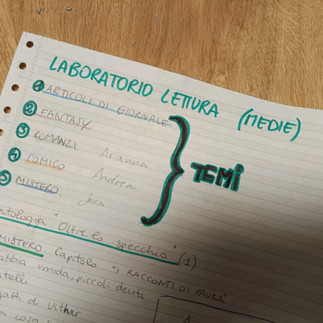 LABORATORIO LETTURA (MEDIE)
1 ARTICOLI DI GIORNALE
2 FANTASY
3 ROMANZI Arianna
4 COMICO Andrea
5 MISTERO
TEMI
ntologia "Oltre lo specchio" (1)
MISTERO Capitolo "I RACCONTI DI PAURA"
abbia umida, piccoli denta
atelli
di Vithar
cosa